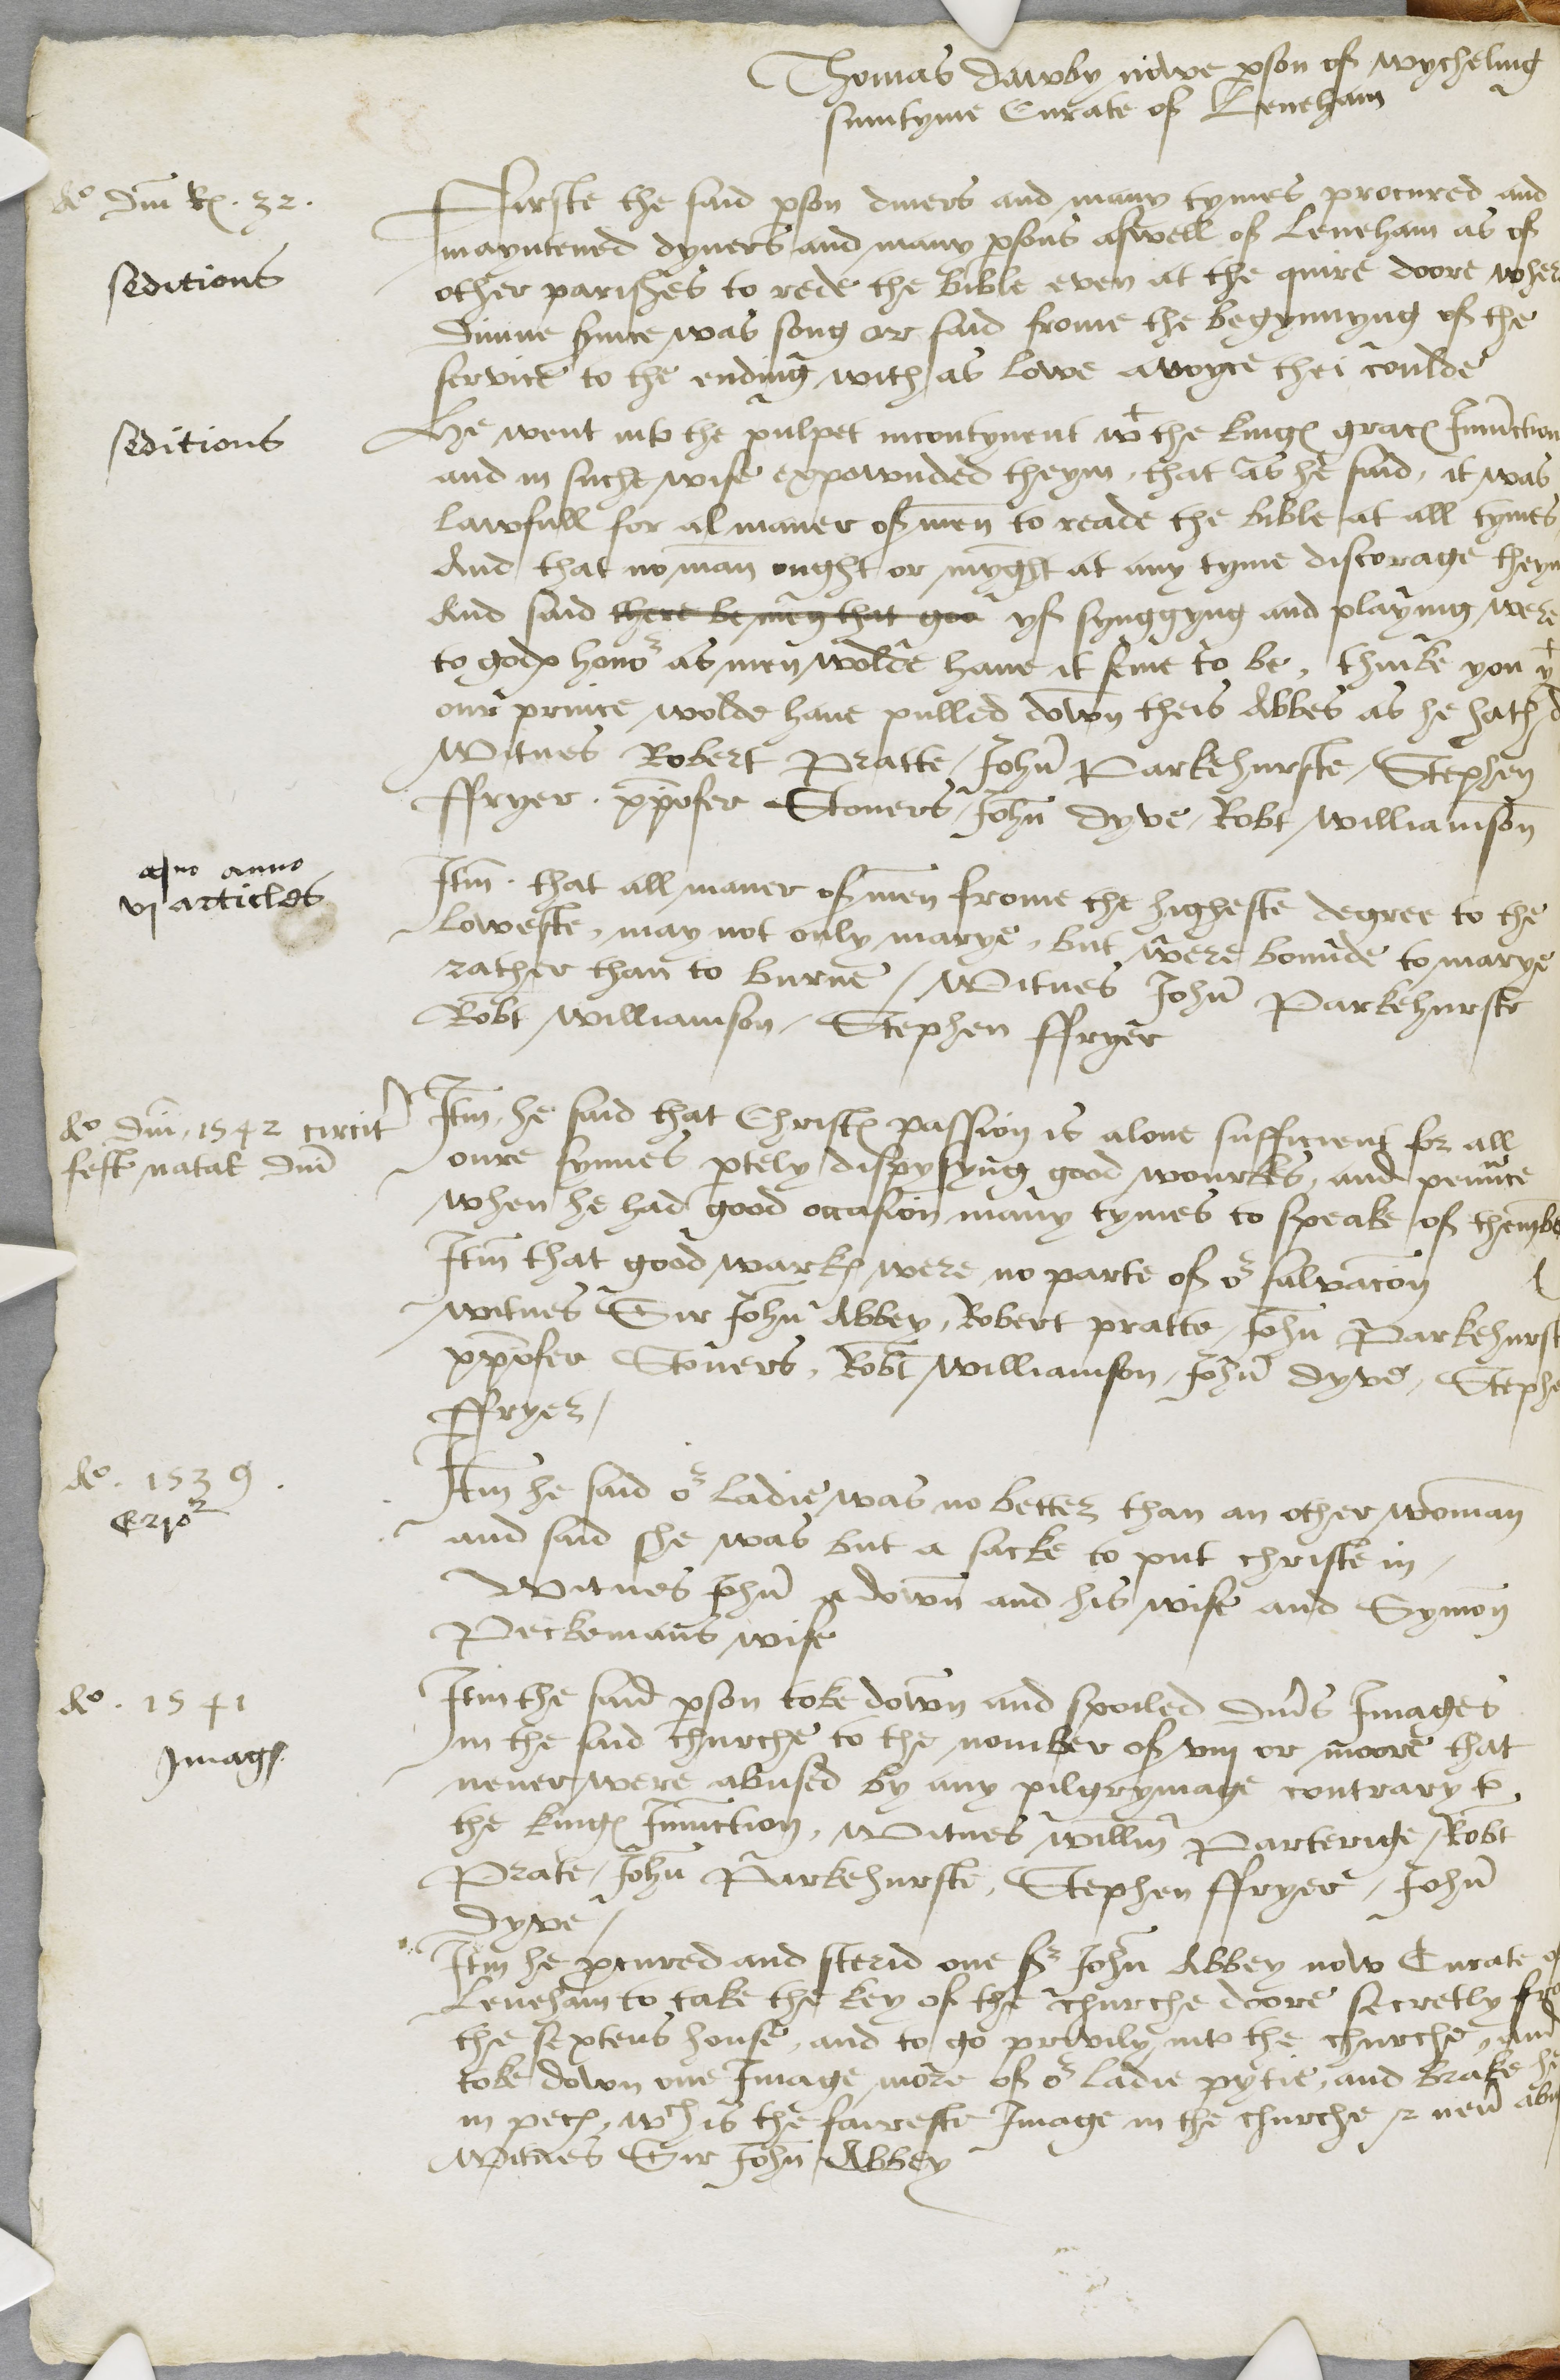 Thomas Dawby nowe pson of wycheling
sumtyme Curate of Leneham
Ao Dni Rx. 32.
Firste the said pson divers and many tymes procured and
mayntened dyvers and many psons aswell of Leneham as of
seditious
other parishes to rede the bible even at the quire doore wher
divine svice was song or said frome the begynnyng of the
service to the ending with as lowe a voyce thei coulde
seditious
He went into the pulpet incontynent wt the kings graces Iniunction
and in suche wise expownded theym, that as he said, it was
lawfull for al maner of men to reade the bible at all tymes
And that no man ought or myght at any tyme discorage theym
And said there be men that goo yf synggyng and playing were
to gods honor as men wolde have it seme to be, thinke you yt
our prince wolde have pulled down theis Abbes as he hath
Witnes Robert Pratte, John Parkehurste, Stephen
ffryer. xpofer Stoners, John Dyve, Robt williamson
eodem anno
vj articles
Itm. that all maner of men frome the higheste degree to the
loweste, may not only marye, but were bounde to marye
rather than to burne / Witnes John Parkehurste
Robt williamson, Stephen ffryer
Ao Dni, 1542 circit
fest natal Dni
Itm, he said that Christs passion is alone sufficient for all
oure synnes ptely dispysyng good wourkes, and pennce
when he had good occasion many tymes to speake of them
Itm that good warks were no parte of or salvacon
witnes Sir John Abbey, Robert pratte, John Parkehurst
xpofer Stoners, Robt williamson, John dyve, Stephe
ffryer /
Ao. 1539.
Itm he said or ladie was no better than an other woman
and said she was but a sacke to put christe in,
Witnes John a down and his wife and Symon
Peckemans wife
Ao. 1541
Itm the said pson toke down and spoiled divs Images
in the said churche to the nomber of viij or moore that
Images
never were abused by any pilgrymage contrary to
the kings Iniunction, Witnes willm Parterige, Robt
Prate, John Parkehurste, Stephen ffryere, John
Dyve /
Itm he pcured and sterid one sr John Abbey now Curate of
Leneham to take the key of the churche doore secretly fro
the sextens house, and to go privily into the churche, and
toke down one Image more of or ladie pytie, and brake he
in peces, wch is the faireste Image in the churche & nev abu
Witnes Sir John Abbey